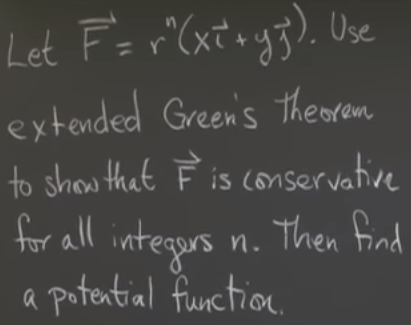 Let F⃗ = rⁿ(xi⃗ + yj⃗). Use
extended Green's Theorem
to show that F⃗ is conservative
for all integers n. Then find
a potential function.